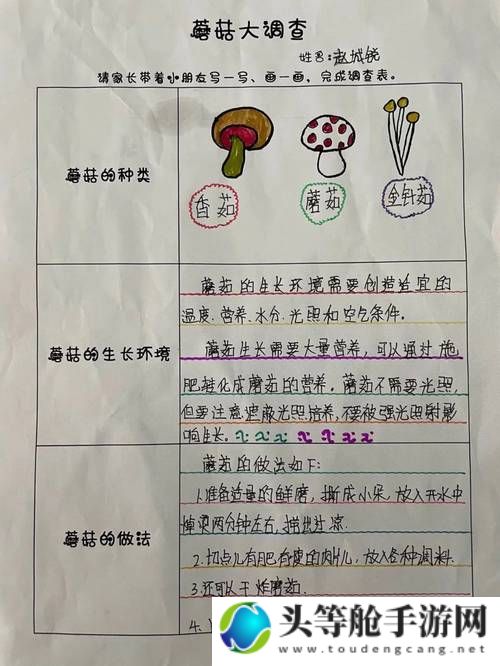 蘑菇大调查
姓名:赵城锐
请家长带着小朋友写一写、画一画,完成调查表。
蘑菇的种类
香菇
蘑菇
金针菇
蘑菇的生长环境
蘑菇的生长环境需要创造适宜的
温度.营养.水分.光照和空气条件.
蘑菇生长需要大量营养,可以通过施
肥转化成蘑菇的营养.蘑菇不需要光照,
但要注意遮蔽光照培养,不要被强光照射影
响生长.
蘑菇的做法
蘑菇的做法如下:
1.准备适量的鲜蘑,撕成小朵,放入开水中
焯烫两分钟左右,捞出过凉.
2.切点儿有肥有瘦的肉片儿,放入各种调料.
3.还可以干炸蘑菇.
4.
头等舱手游网
www.toudengcang.net